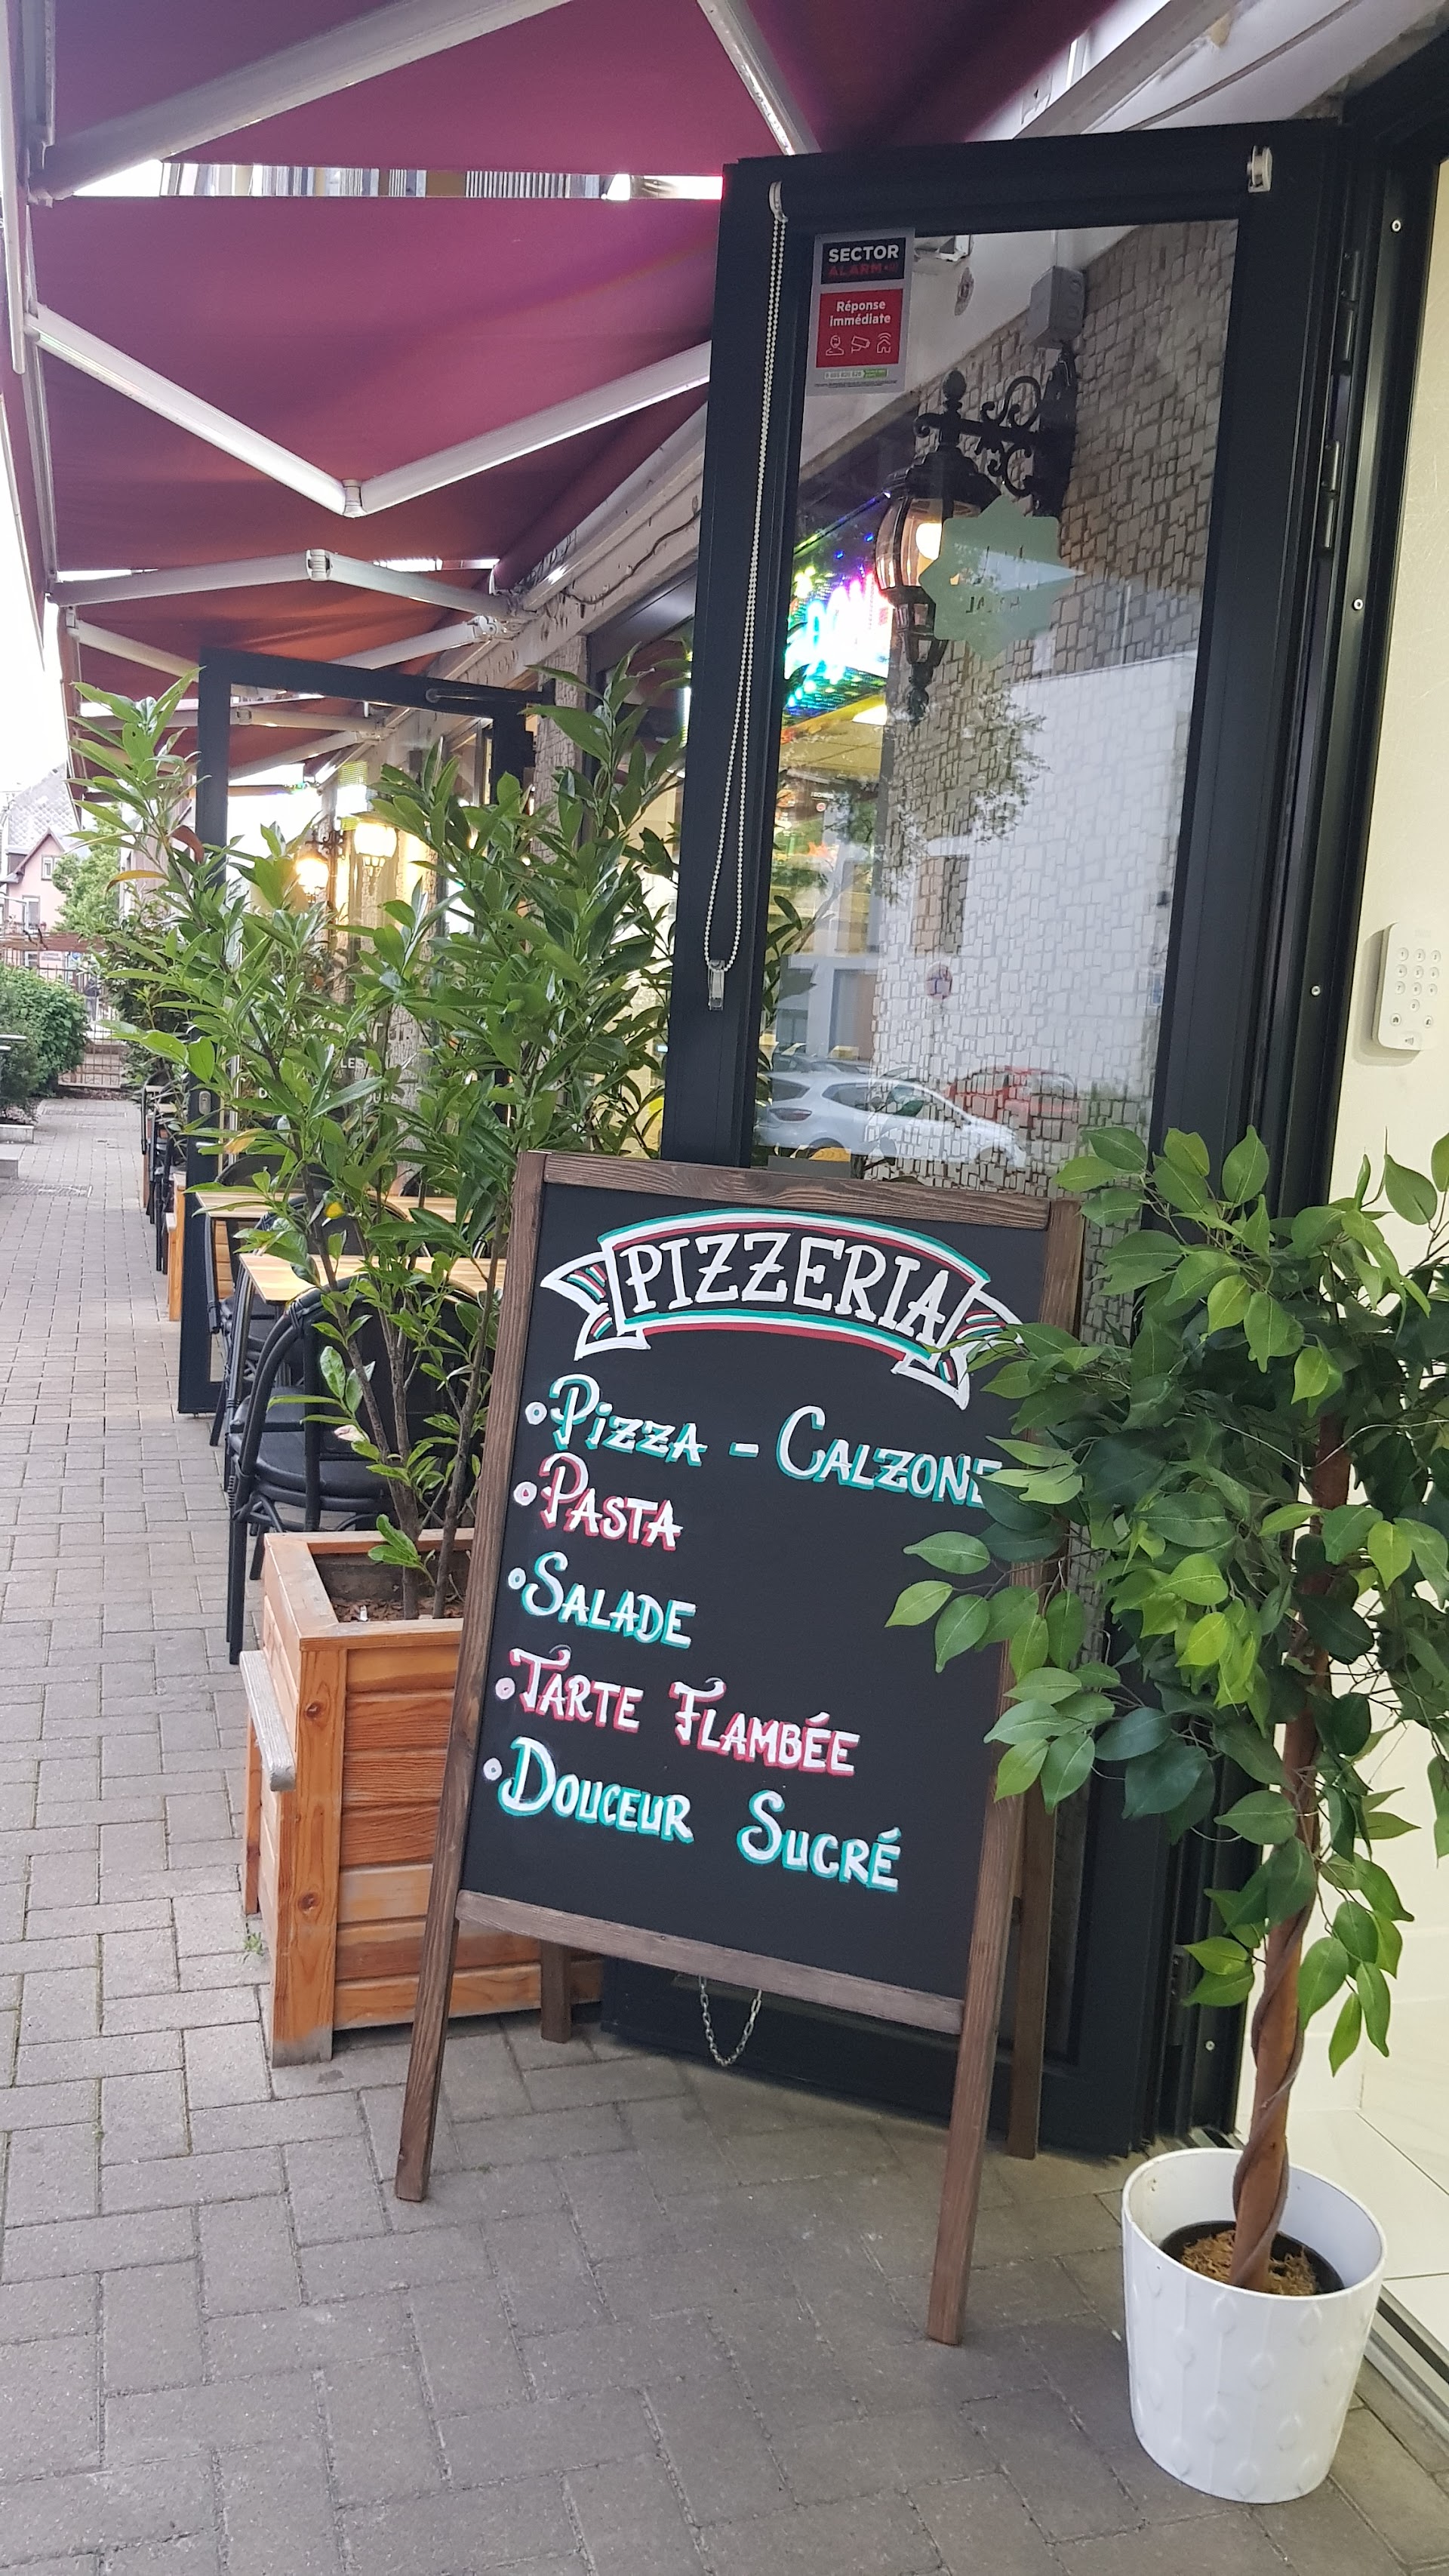 SECTOR
ALARM
Réponse
immédiate
PIZZERIA
Pizza - CALZONE
PASTA
SALADE
TARTE FLAMBÉE
DOUCEUR SUCRÉ